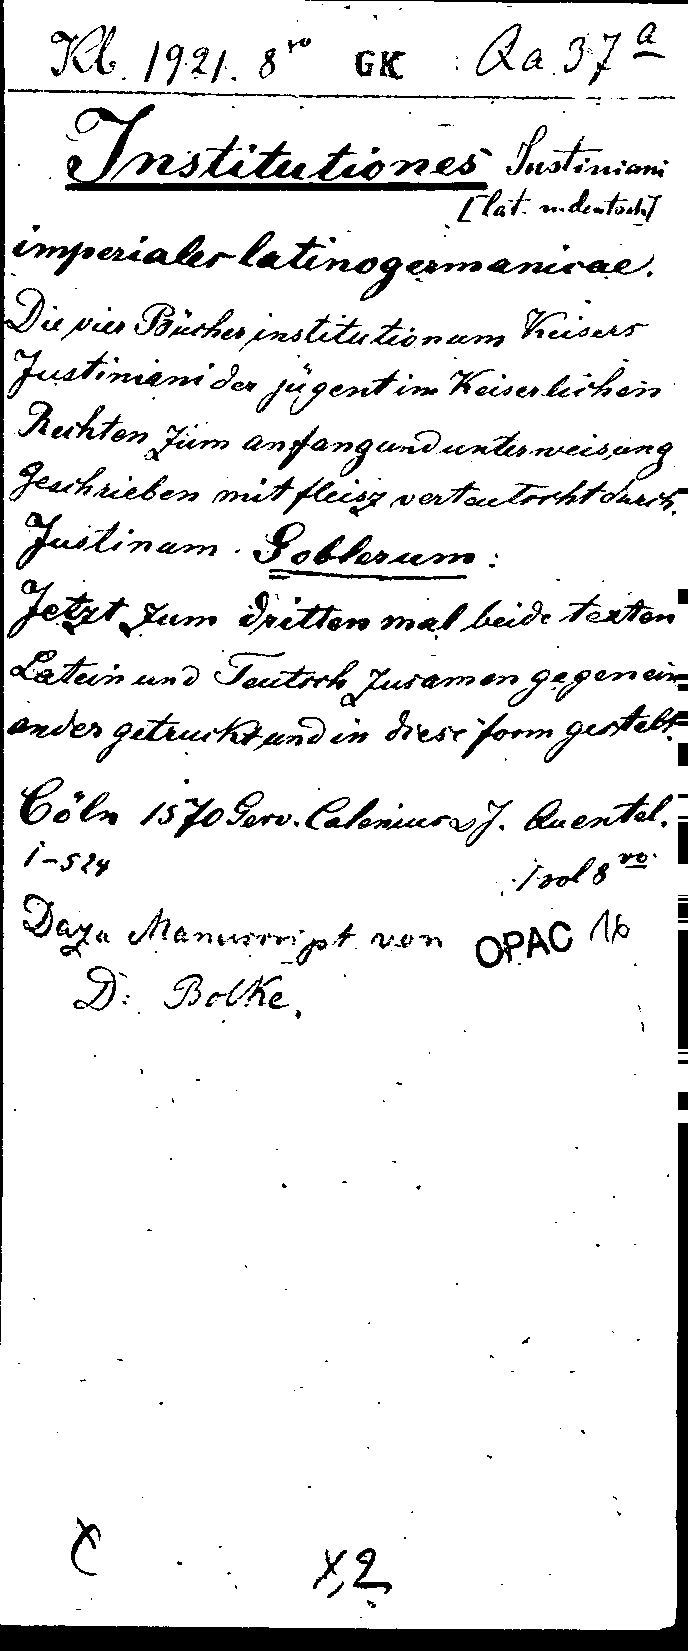 Kl. 1921. 8ro GK Qa 37a
Institutiones Justiniani
[lat. u. deutsch]
imperiales latinogermanicae.
Die vier Bücher institutionum Keisers
Justiniani der jügent im Keiserlichen
Rechten zum anfang und unterweisung
geschrieben mit fleisz verteutscht durch
Justinam. Goblerum:
Jetzt zum dritten mal beide texten
Latein und Teutsch zusamen gegenein
ander getruckt und in diese form gestelt.
Cöln 1570 Gerv. Calenius u J. Quentel.
1-524
1 vol 8vo.
Dazu Manuscript von OPAC 16
D: Bolke.
X
X,2